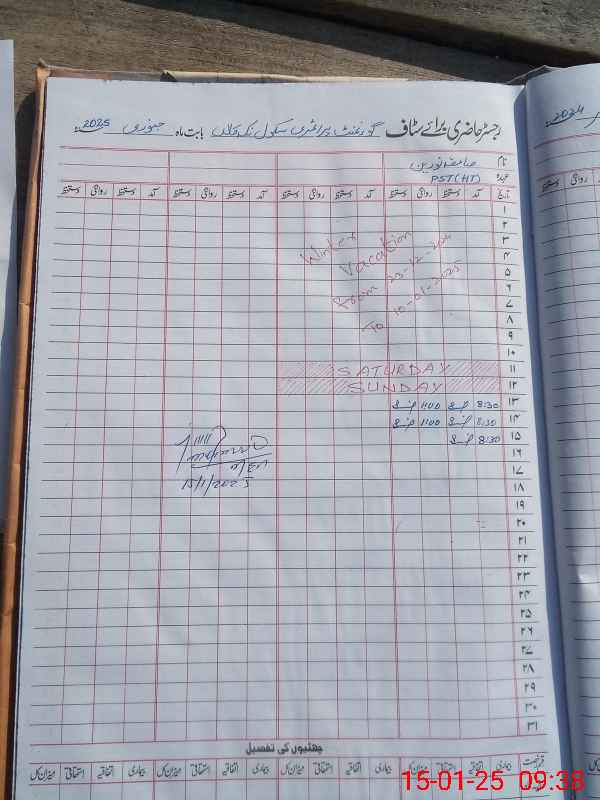 رجسٹر حاضری برائے سٹاف گورنمنٹ پرائمری سکول بابت ماہ جنوری 2025ء
2024
نام
عہدہ PST(HT)
تاریخ آمد دستخط روانگی دستخط آمد دستخط روانگی دستخط آمد دستخط روانگی دستخط آمد دستخط روانگی دستخط
۱
۲
۳ Winter
۴ Vacation
۵ From 23-12-2024
۶ To 10-01-2025
۷
۸
۹
۱۰
۱۱ SATURDAY
۱۲ SUNDAY
۱۳ 8:30 1:00
۱۴ 8:30 1:00
۱۵ 8:30
۱۶
۱۷
۱۸ 15/1/2025
۱۹
۲۰
۲۱
۲۲
۲۳
۲۴
۲۵
۲۶
۲۷
۲۸
۲۹
۳۰
۳۱
چھٹیوں کی تفصیل
قسم رخصت بیماری اتفاقیہ استحقاقی میزان کل بیماری اتفاقیہ استحقاقی میزان کل بیماری اتفاقیہ استحقاقی میزان کل بیماری اتفاقیہ استحقاقی میزان کل
15-01-25 09:38